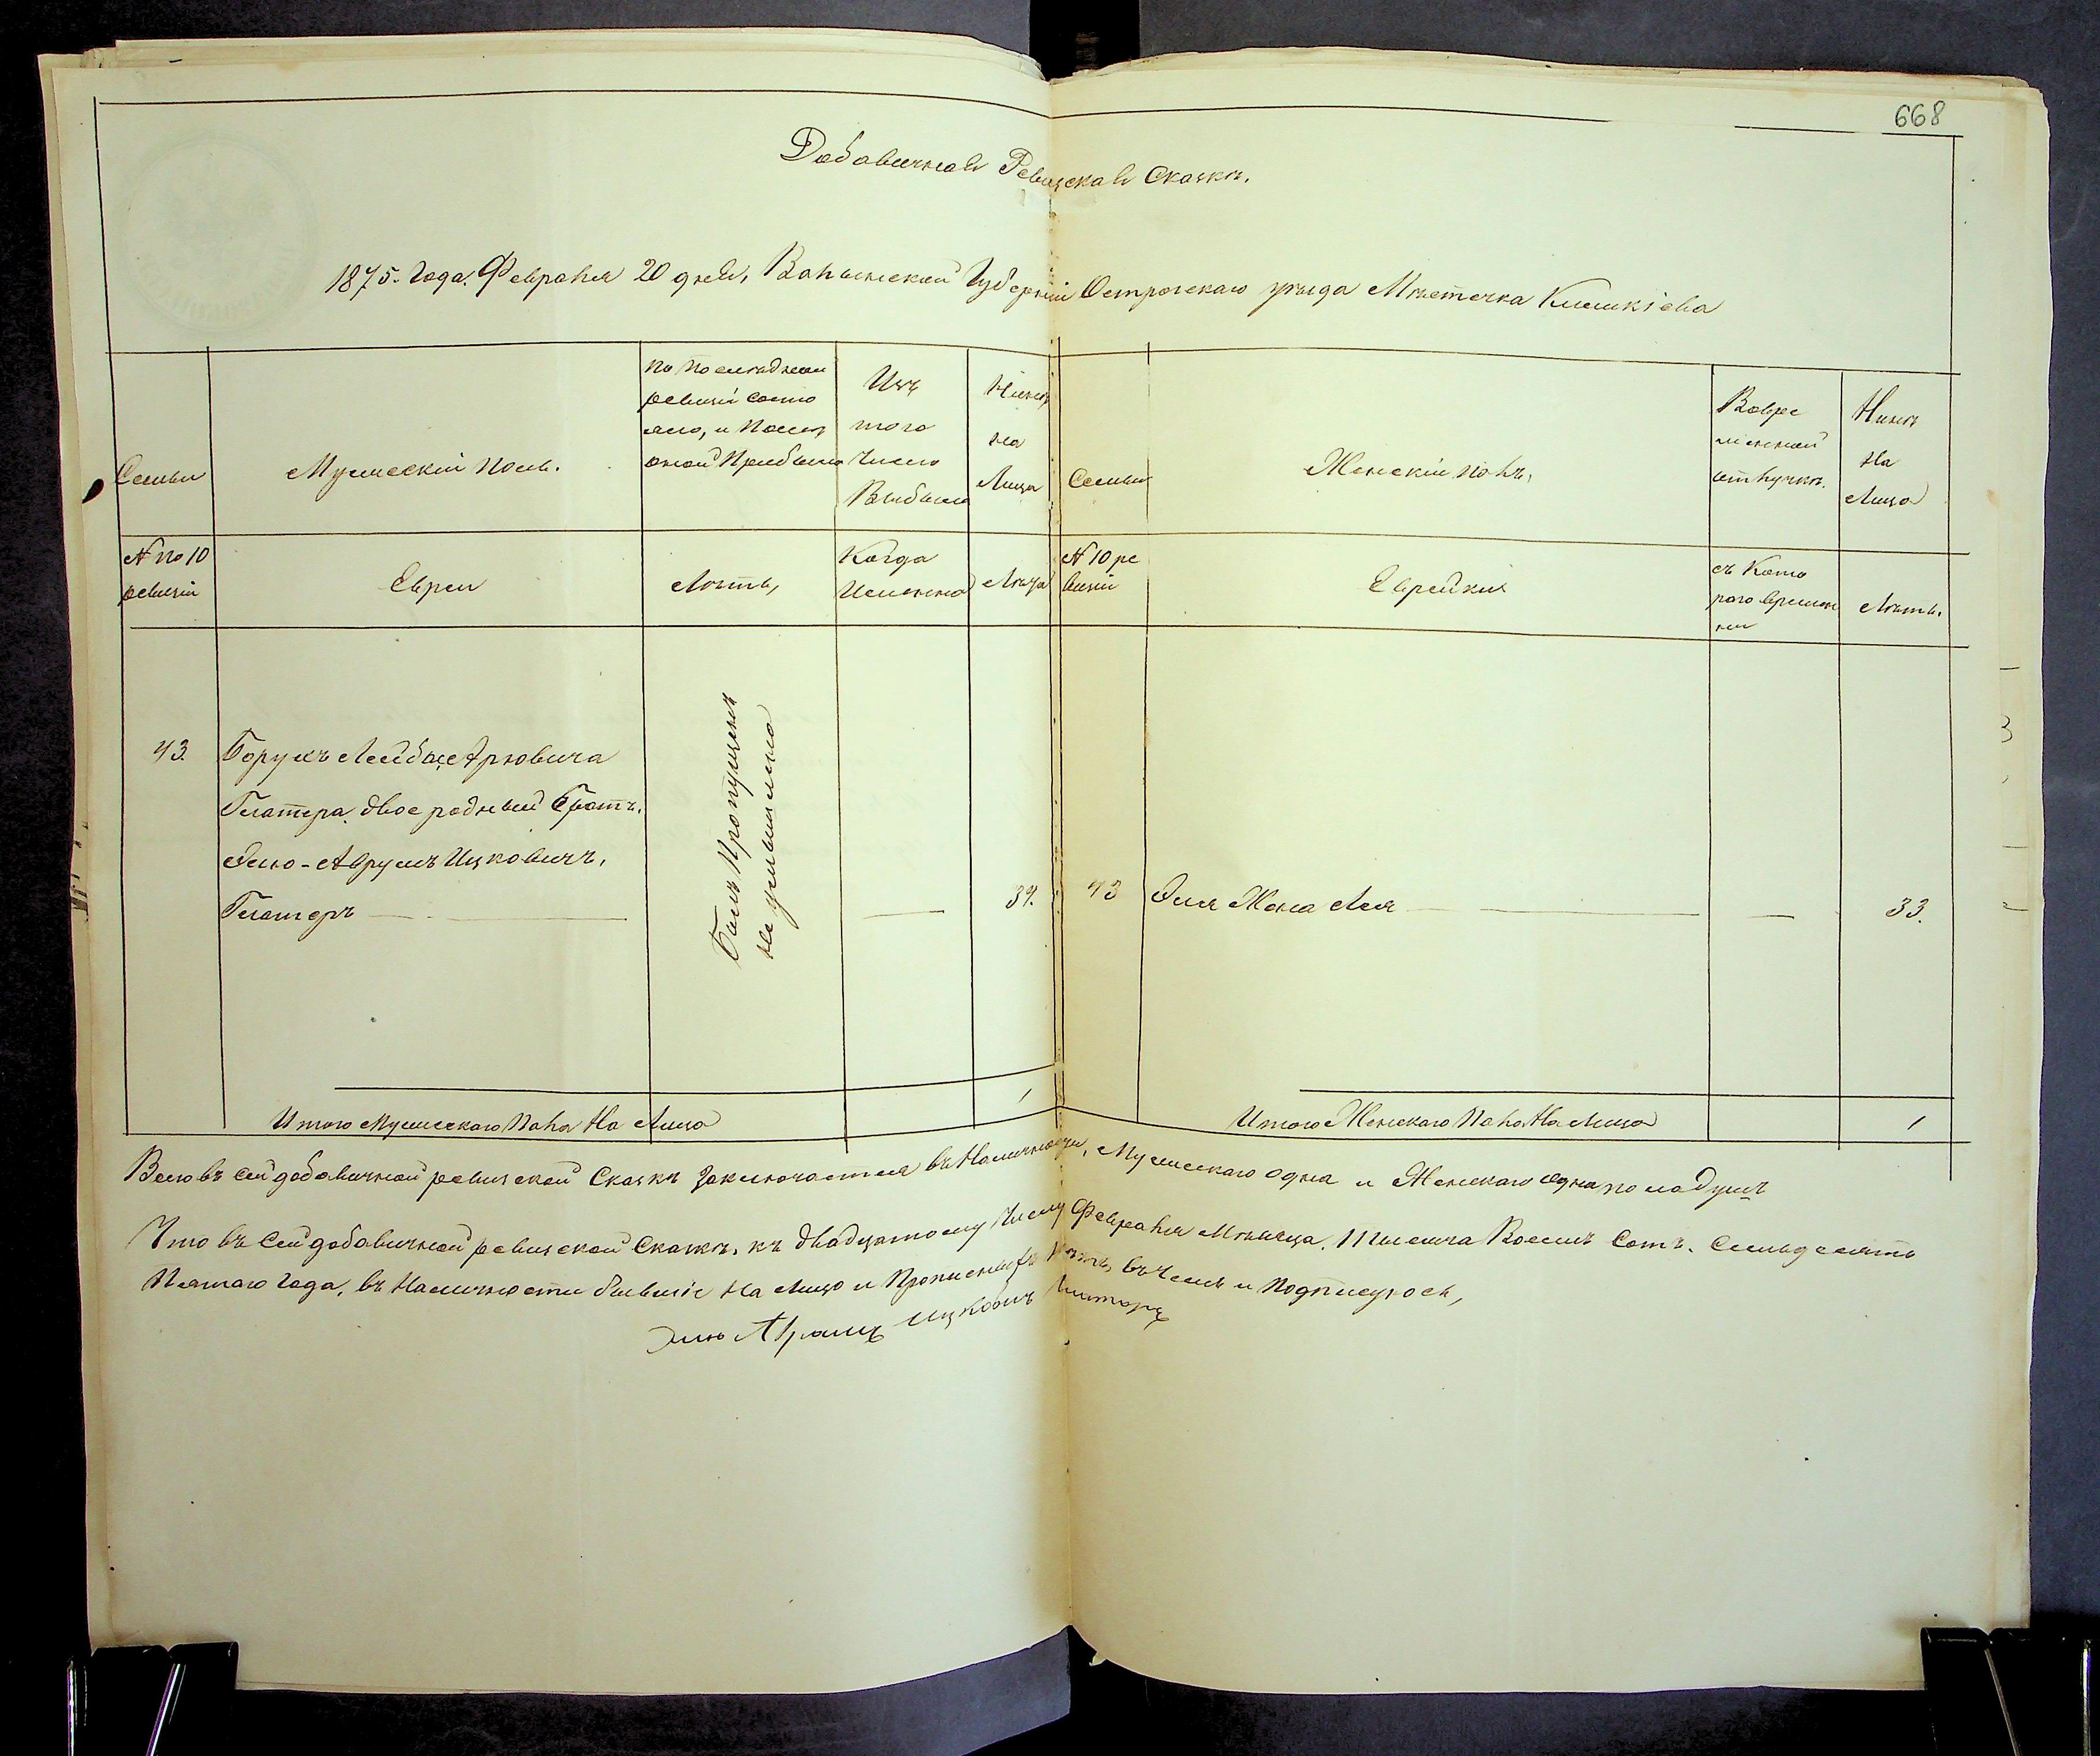 668
Добавичная Ревизская Сказка.
1875. Года. Февраля 20 дня, Волынской Губерніи Острожскаго уѣзда Мѣстечка
Семьи
Мужескій полъ.
По последней
ревизіи состо
яло, и После
оной Прибыло
Изъ
того
Числа
Выбыло
Нынѣ
на
Лицо
Семьи
Женскій полъ,
Вовре
менной
отлучкѣ.
Нынѣ
На
Лицо
№ по 10
ревизіи
Евреи
Лѣтъ,
Когда
Именно
Лѣта
№ 10 ре
визіи
Еврейки
съ Кото
раго Времен
ни
Лѣтъ.
43.
Борухъ Лейбъ Арювича
Глатера двоеродный Братъ.
Элю-Аврумъ Ицковичъ,
Глатеръ
Былъ Пропущенъ
не умышленно
34.
43
Эля Жена Лея
33.
1
Итого Мужескаго Пола На Лицо
Итого Женскаго Пола На Лицо
1
Всего въ сей добавичной ревизской Сказкѣ Заключается въ Наличности, Мужескаго одна и Женскаго одна пола душъ
Что въ Сей добавичной ревизской Сказкѣ, къ двадцатому Числу Февраля Мѣсяца. 1 Тысяча Восемь Сотъ. Семьдесятъ
Пятаго Года, въ Наличности бывшіе На Лицо и въ Чемъ и Подписуюсь,
Элю Аврамъ Ицковичъ